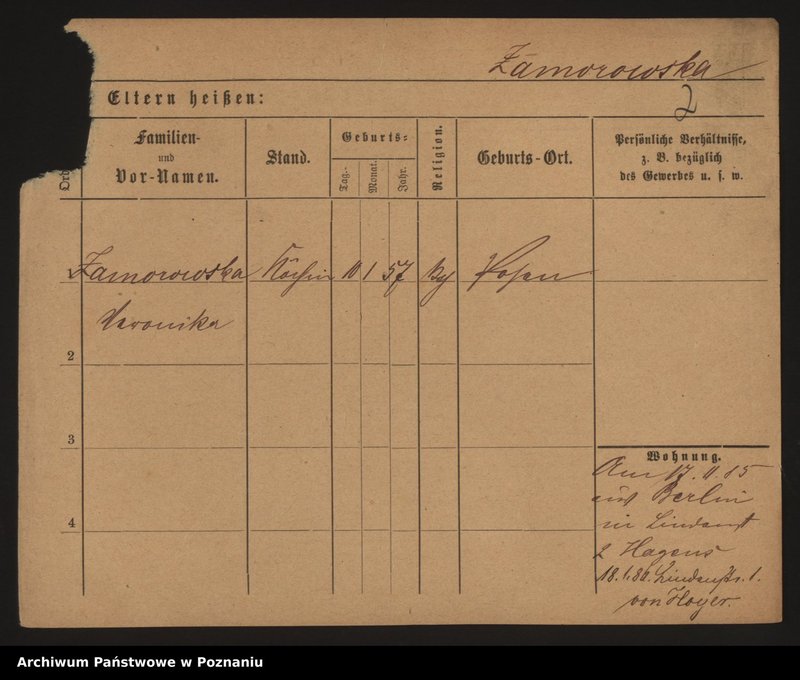 Zamorowska
2
Eltern heißen:
Ord
Familien-
und
Vor-Namen.
Stand.
Geburts-
Tag.
Monat.
Jahr.
Religion.
Geburts-Ort.
Persönliche Verhältnisse,
z. B. bezüglich
des Gewerbes u. s. w.
1 Zamorowska Köchin 10 1 57 Posen
Veronika
2
3
4
Wohnung.
Am 17.11.85
aus Berlin
in
2 Hagens
18.1.86. Lindenstr. 1.
von Hoyer.
Archiwum Państwowe w Poznaniu